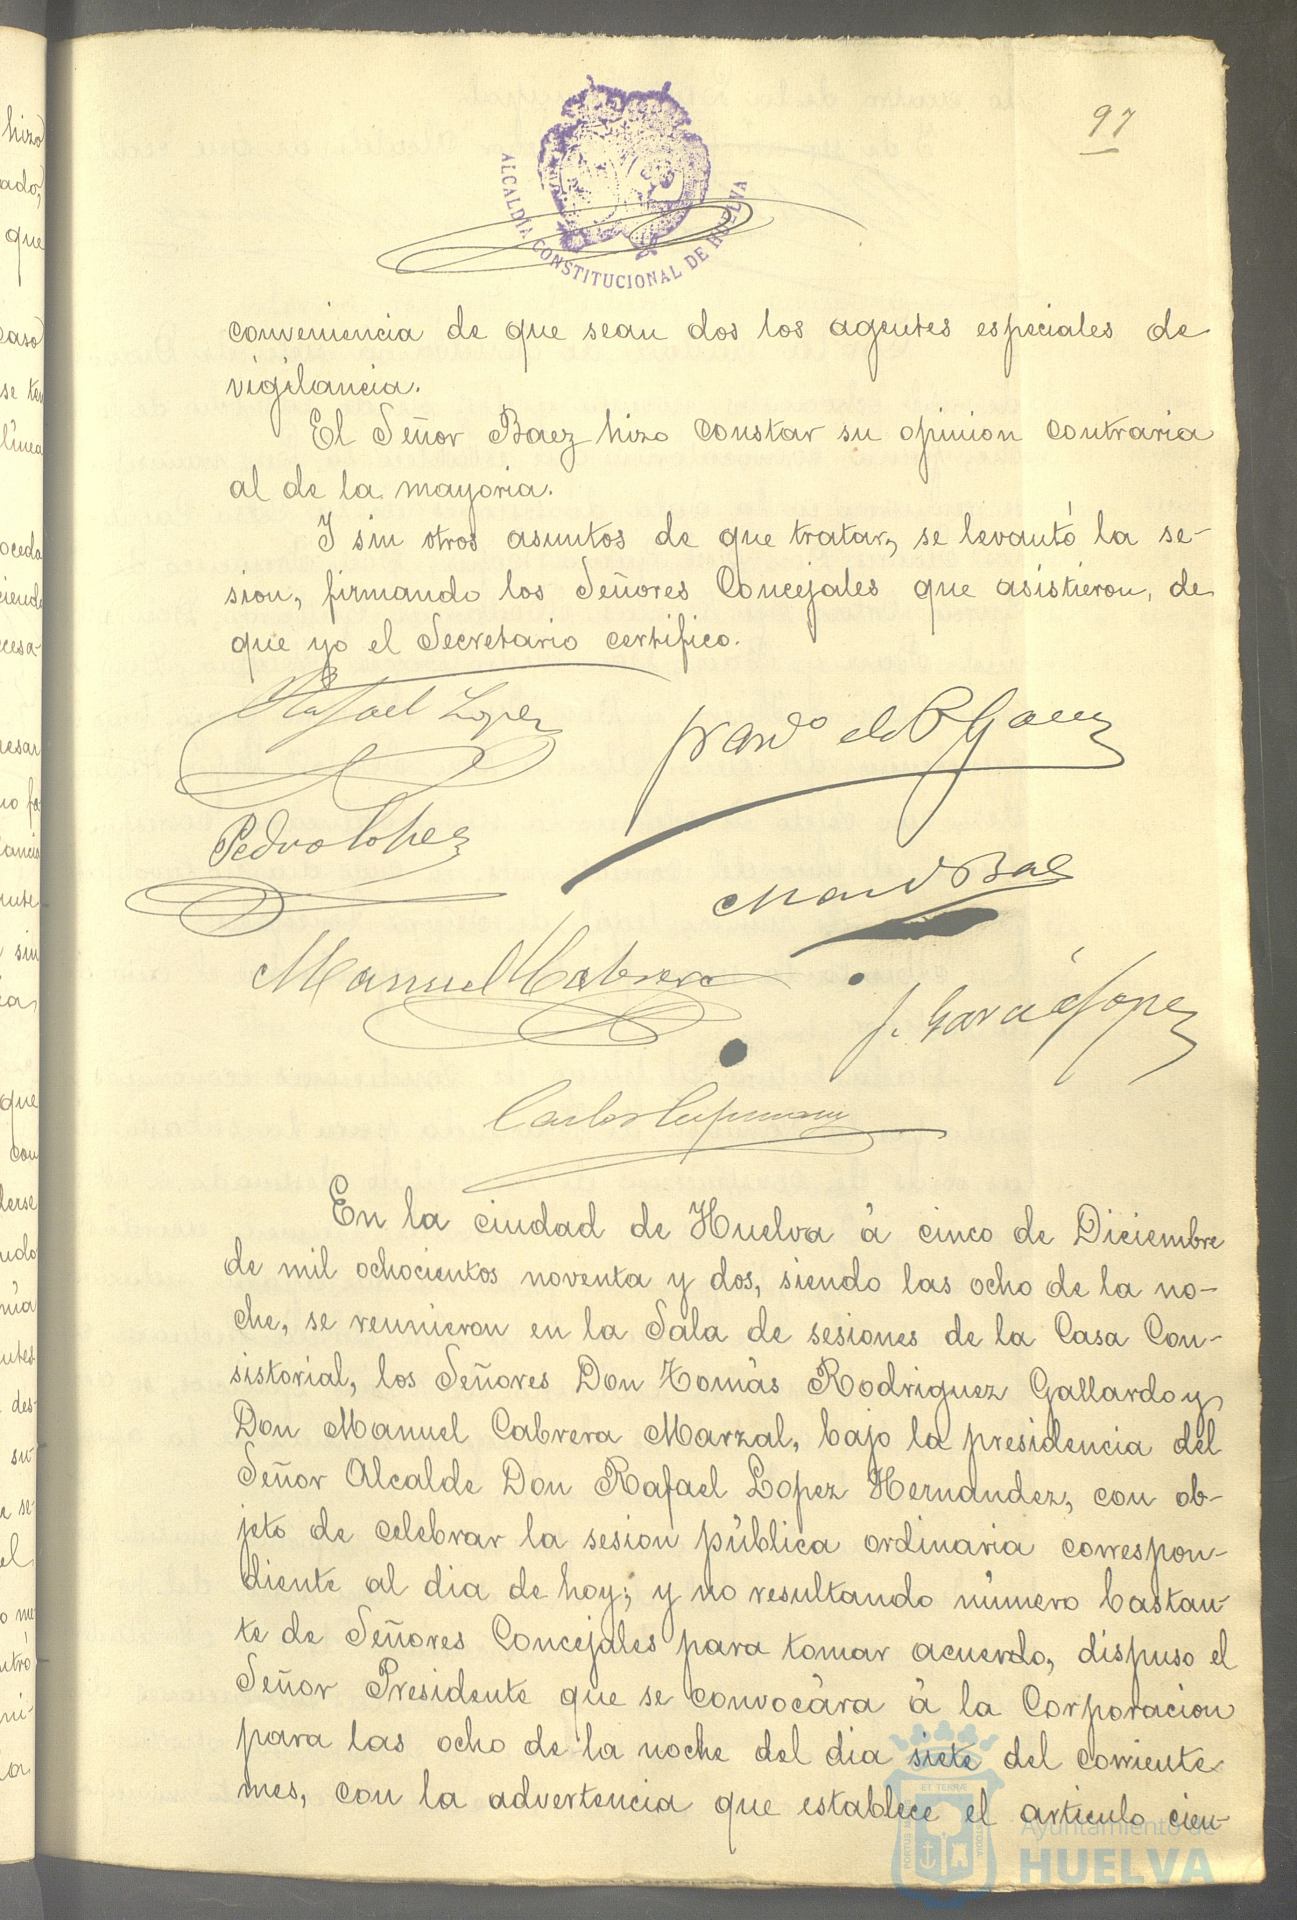 97
ALCALDÍA CONSTITUCIONAL DE HUELVA
conveniencia de que sean dos los agentes especiales de
vigilancia.
El Señor Baez hizo constar su opinion contraria
al de la mayoria.
Y sin otros asuntos de que tratar, se levantó la se-
sion, firmando los Señores Concejales que asistieron, de
que yo el Secretario certifico.
Rafael Lopez
Pedro Lopez
Manuel Cabrera
J. Garcia Lopez
En la ciudad de Huelva á cinco de Diciembre
de mil ochocientos noventa y dos, siendo las ocho de la no-
che, se reunieron en la Sala de sesiones de la Casa Con-
sistorial, los Señores Don Tomás Rodriguez Gallardo y
Don Manuel Cabrera Marzal, bajo la presidencia del
Señor Alcalde Don Rafael Lopez Hernandez, con ob-
jeto de celebrar la sesion pública ordinaria correspon-
diente al dia de hoy; y no resultando número bastan-
te de Señores Concejales para tomar acuerdo, dispuso el
Señor Presidente que se convocára á la Corporacion
para las ocho de la noche del dia siete del corriente
mes, con la advertencia que establece el articulo cien-
Ayuntamiento de
HUELVA